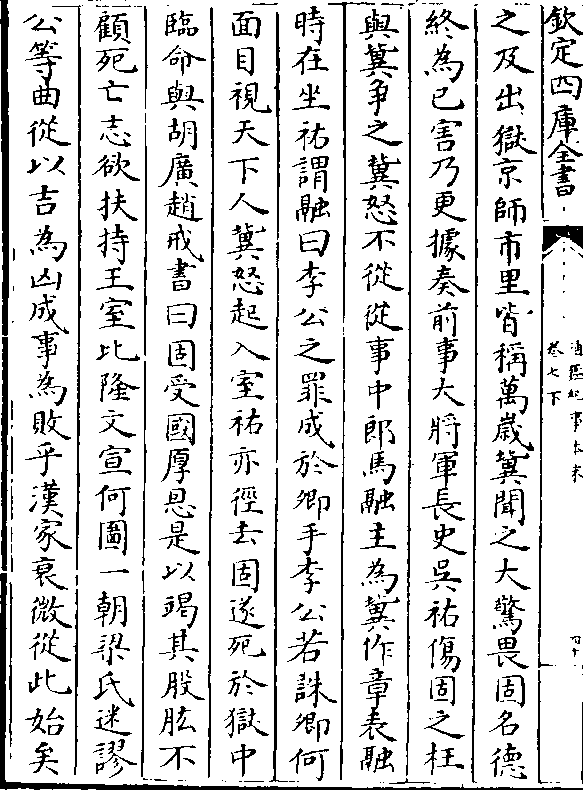 欽定四庫全書
通鑑紀事本末
卷七下
四十
之及出獄京師市里皆稱萬歲冀聞之大驚畏固名德
終為已害乃更據奏前事大將軍長史吳祐傷固之枉
與冀爭之冀怒不從從事中郎馬融主為冀作章表融
時在坐祐謂融曰李公之罪成於卿手李公若誅卿何
面目視天下人冀怒起入室祐亦徑去固遂死於獄中
臨命與胡廣趙戒書曰固受國厚恩是以竭其股肱不
顧死亡志欲扶持王室比隆文宣何圖一朝梁氏迷謬
公等曲從以吉為凶成事為敗乎漢家衰微從此始矣